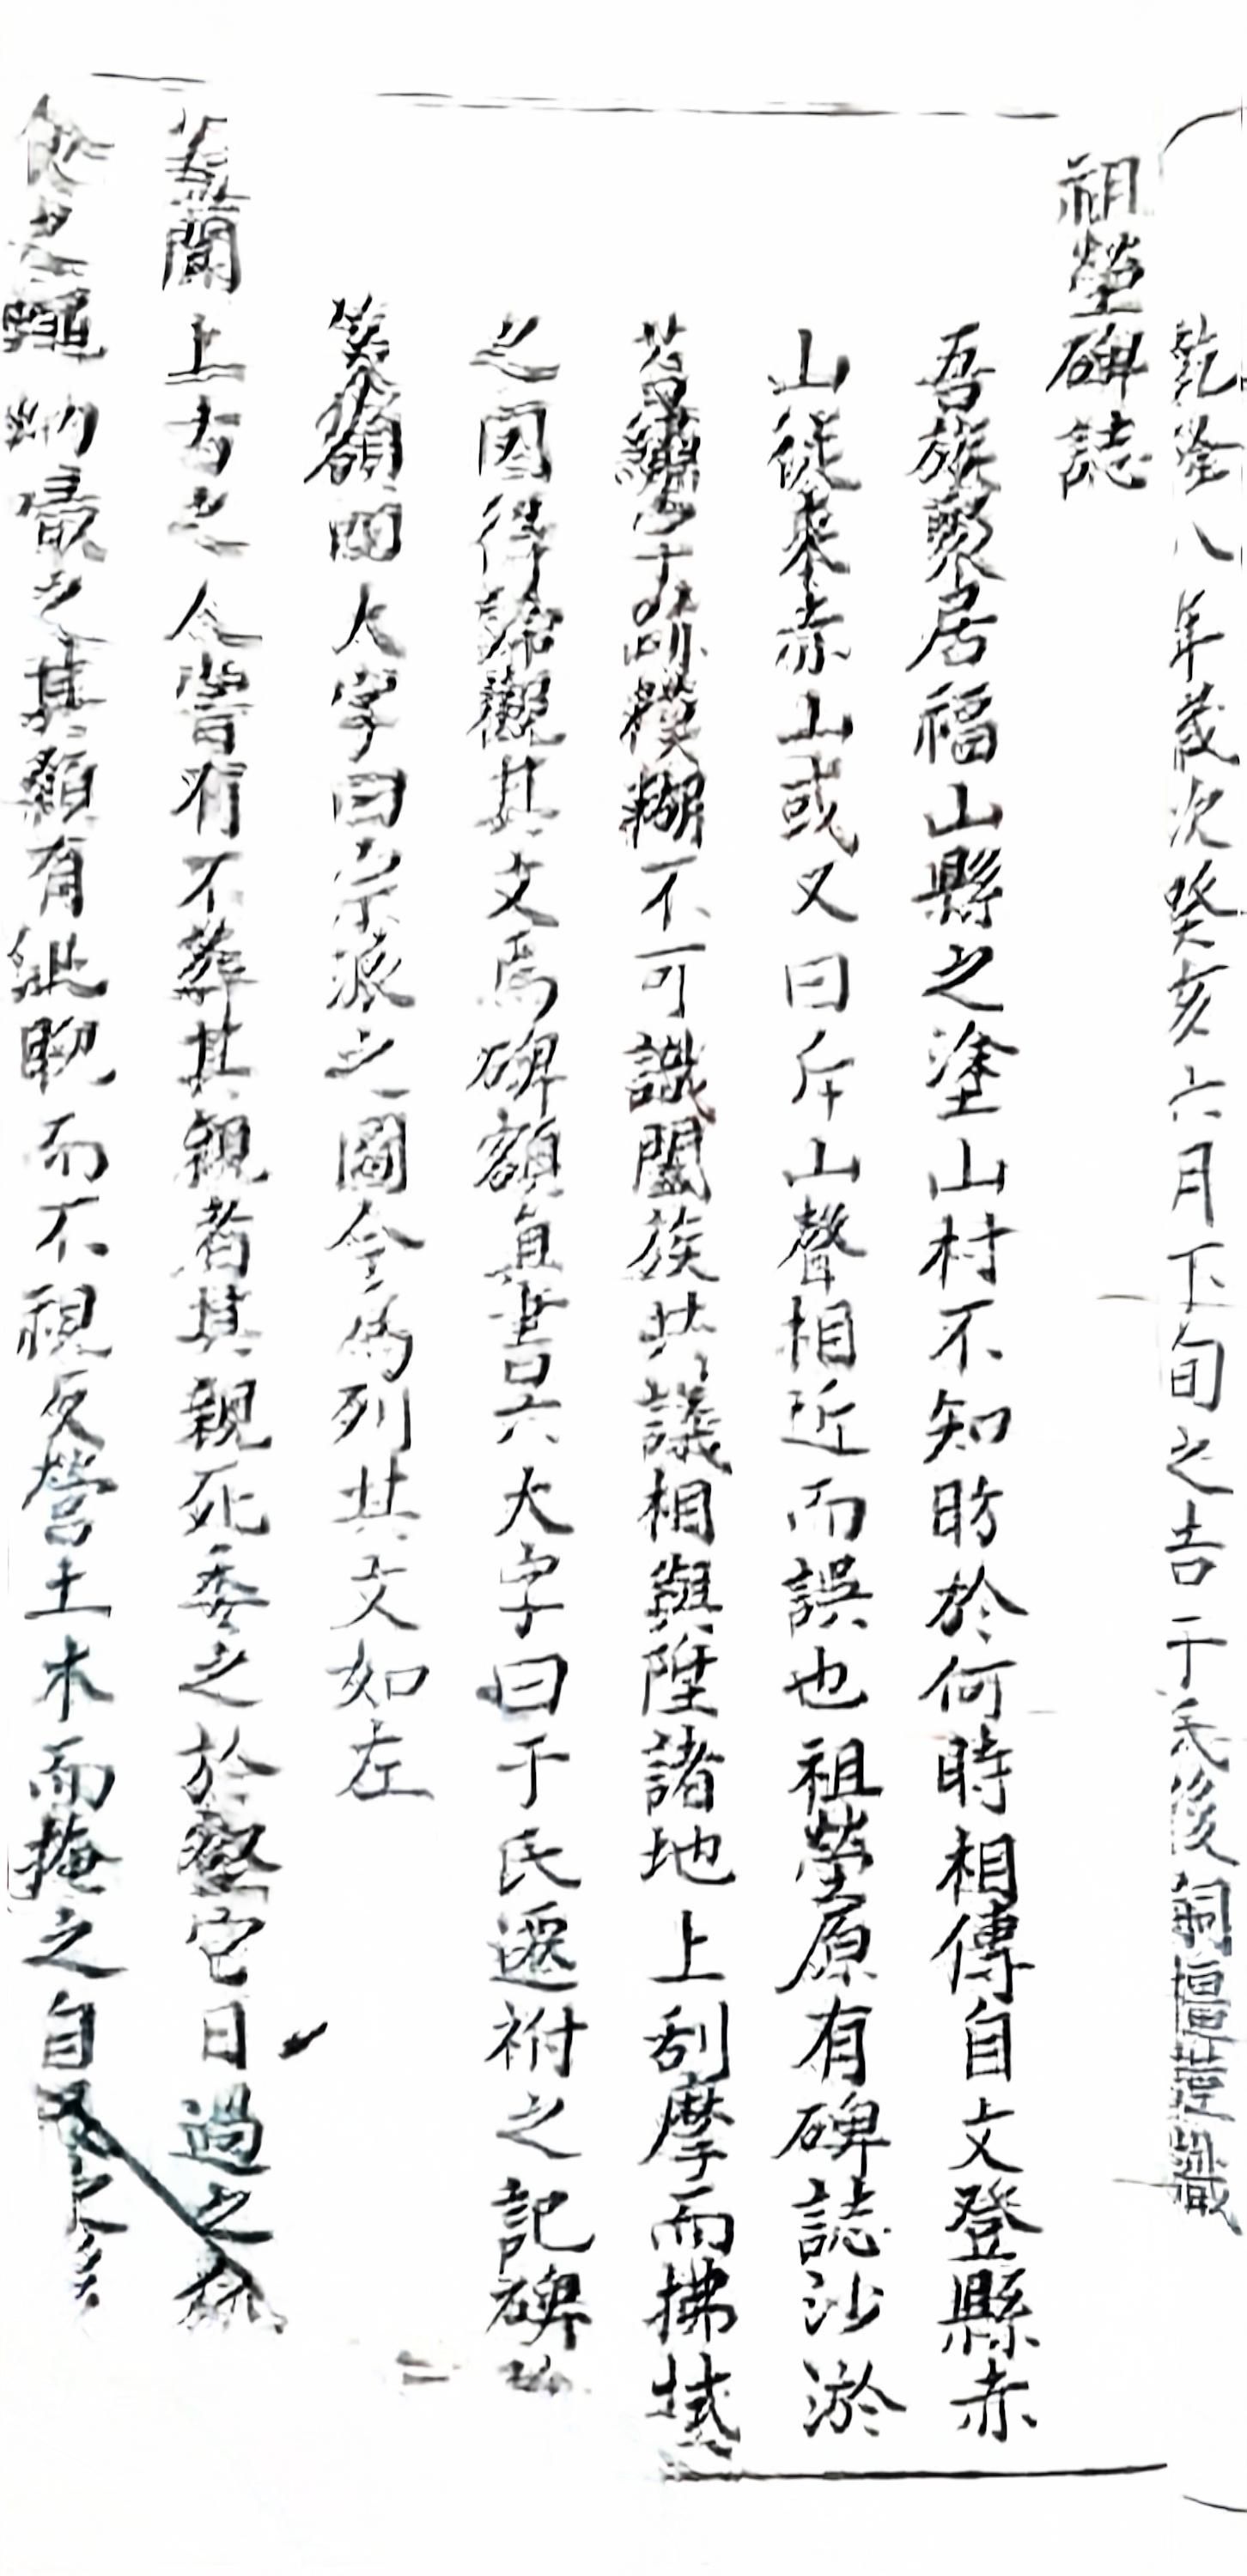 乾隆八年歲次癸亥六月下旬之吉于氏後嗣壇薘識
祖塋碑誌
吾族聚居福山縣之塗山村不知昉於何時相傳自文登縣赤
山徙來赤山或又曰斥山聲相近而誤也祖塋原有碑誌沙淤
苔繡模糊不可識闔族共議相與陞諸地上刮摩而拂拭
之因得諦觀其文焉碑額真書六大字曰于氏遷祔之記碑
篆額大字曰宗派之圖今為列其文如左
蓋聞上古之人嘗有不葬其親者其親死委之於壑它日過之
食之蠅蚋嘬之其顙有泚睨而不視反營土木而掩之自